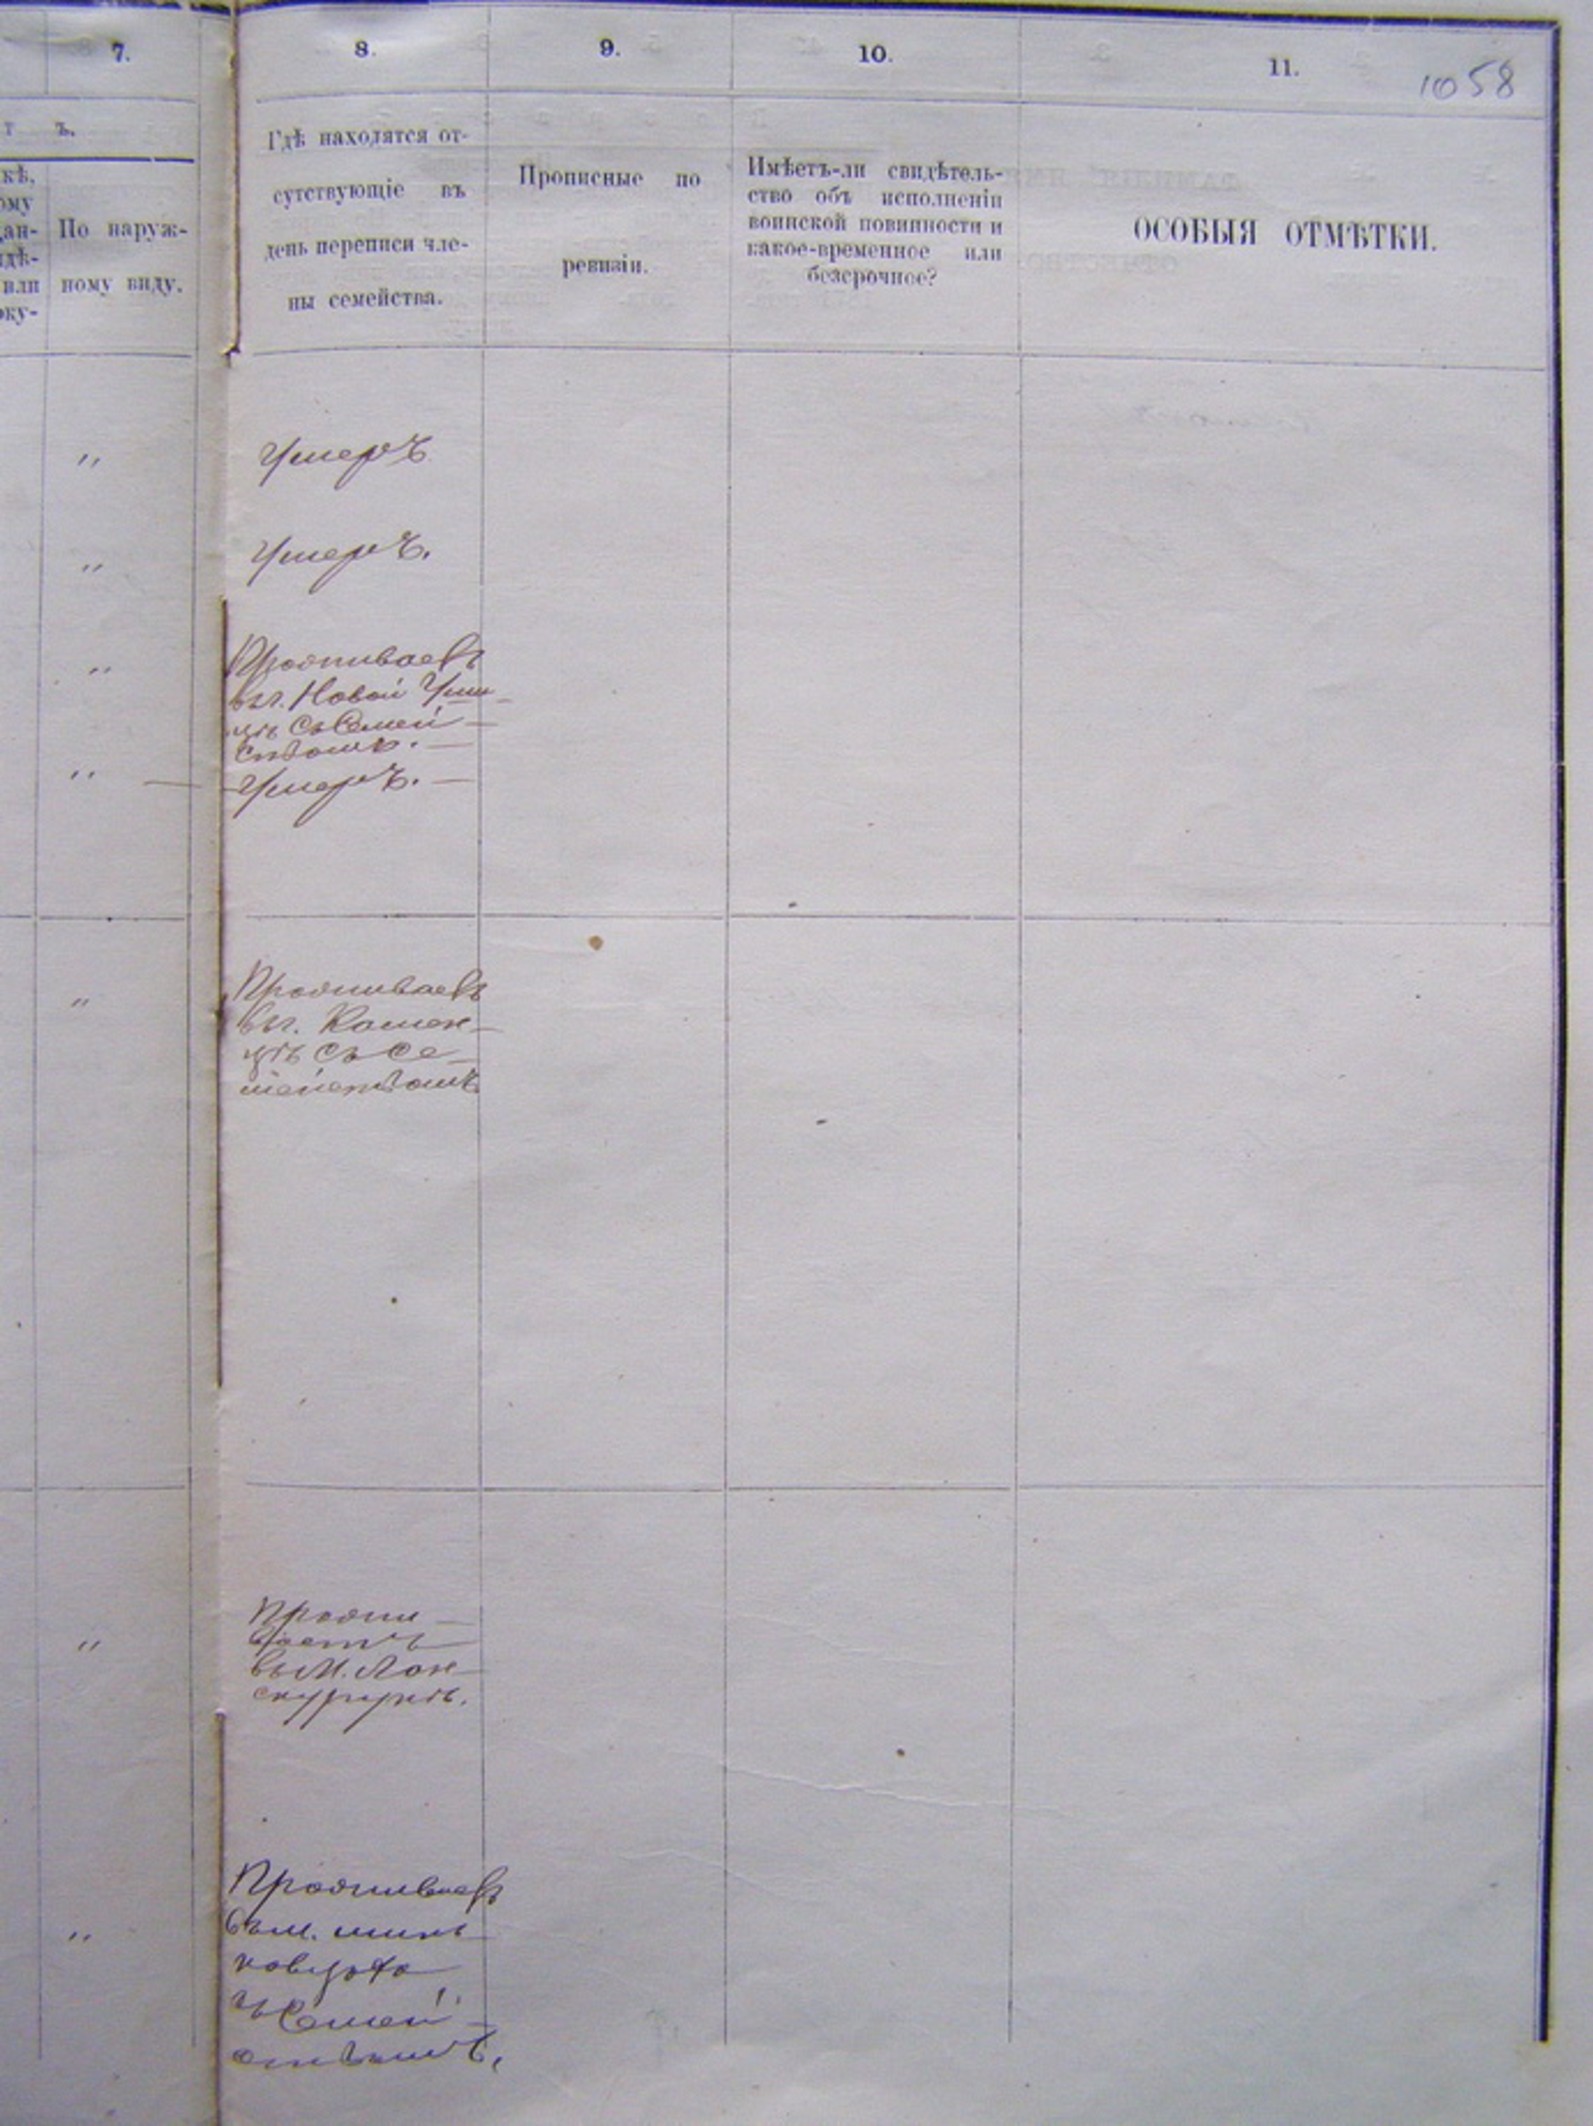 7.
8.
9.
10.
11.
1058
т ъ.
кѣ,
ому
дан-
идѣ-
или
оку-
По наруж-
ному виду.
Гдѣ находятся от-
сутствующіе въ
день переписи чле-
ны семейства.
Прописные по
ревизіи.
Имѣетъ-ли свидѣтель-
ство объ исполненіи
воинской повинности и
какое-временное или
безсрочное?
ОСОБЫЯ ОТМѢТКИ.
"
Умеръ
"
Умеръ.
"
Проживаетъ
въ г. Новой Уши-
цѣ съ Семей-
ствомъ.
"
Умеръ.
"
Проживаетъ
въ г. Камен-
цѣ съ се-
мействомъ
"
Прожи-
ваетъ
въ М. Лян-
скурунѣ.
"
Проживаетъ
въ м. Минь-
ковцахъ
съ Семей-
ствомъ.